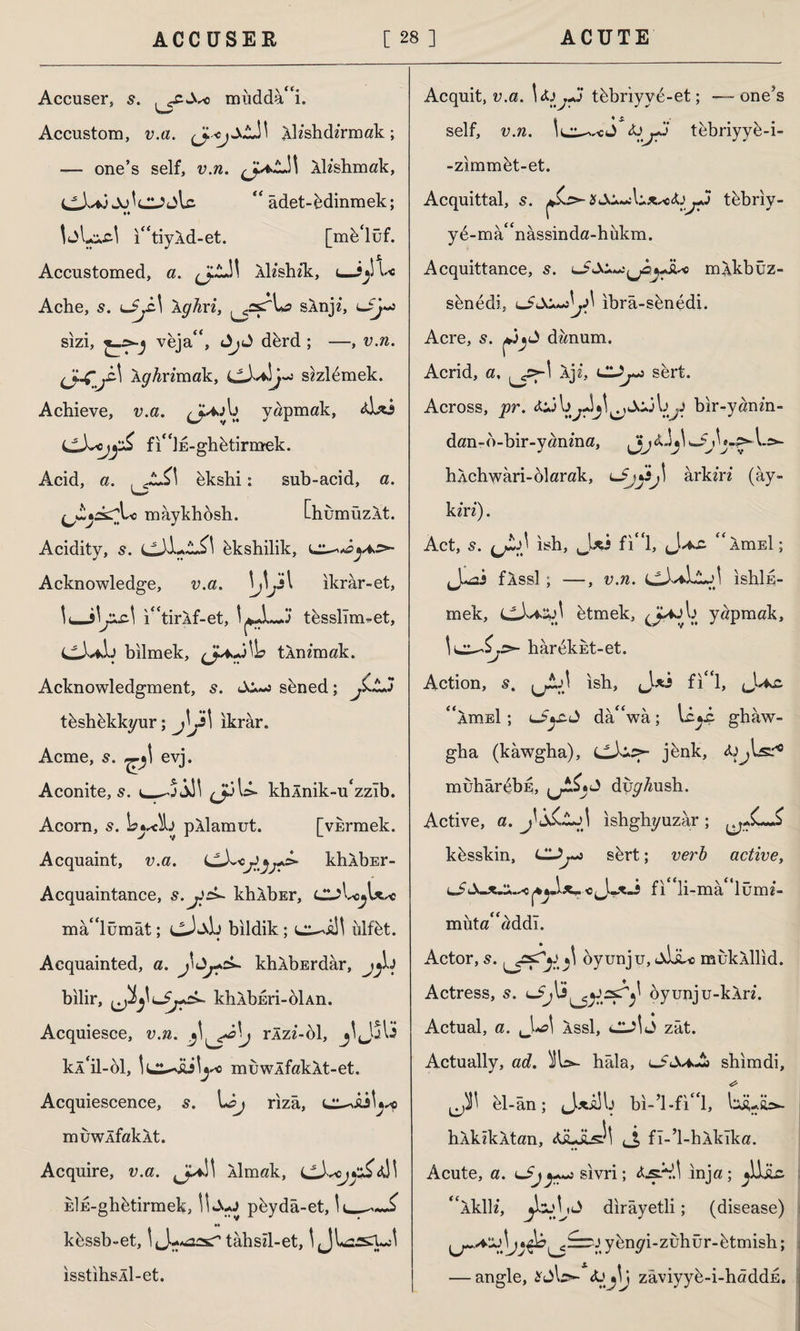 ACCUSER [ 28 ] ACUTE
Accuser, s. مدعی muddà“i.
Accustom, v.a. آلشدیرمق Àlishdirmak;
— one’s self, v.n. آلشمق Àlishmak,
عادت ایدنمك “àdet-èdinmek;
اعتیادا i“tiyÀd-et. [mè‘lūf.
Accustomed, a. آلشق Àlishik, مألوف
Ache, s. اغری Àghri, صانجی sÀnji, سزی
sìzi, وجع vèja“, درد dèrd; —, v.n.
اغریمق Àghrimak, سزلمك sizlémek.
Achieve, v.a. یاپمق yàpmak, فعله
كتیرمك fi“lE-ghètirmek.
Acid, a. اكشی èkshi: sub-acid, a.
مایخوش màykhòsh. [humūzÀt.
Acidity, s. اكشیلك èkshilik, حموضت
Acknowledge, v.a. اقرارا ìkràr-et,
اعترافا i“tirÀf-et, تسلیما tèsslīm-et,
بیلمك bìlmek, طانیمق tÀnimak.
Acknowledgment, s. سند sèned; تشكر
tèshèkkyur; اقرار ìkràr.
Acme, s. اوج evj.
Aconite, s. خانق الذئب khÀnik-u‘zzīb.
Acorn, s. پلاموط pÀlamut. [vErmek.
Acquaint, v.a. خبر ویرمك khÀbEr-
Acquaintance, s. خبر khÀbEr, معلومات
mà“lūmàt; بیلدك bìldik; الفت ülfèt.
Acquainted, a. خبردار khÀbErdàr, بیلیر
bìlir, خبری اولان khÀbEri-ólAn.
Acquiesce, v.n. راضی اول rÀzi-òl, قائل اول
kÀ‘il-òl, موافقتا muwÀfakÀt-et.
Acquiescence, s. رضا rìzā, موافقت
muwÀfakÀt.
Acquire, v.a. آلمق Àlmak, اله كتیرمك
ElE-ghètirmek, پیدا ا pèydā-et, كسب ا
kèssb-et, تحصیل ا tàhsīl-et, استحصال ا
ìsstìhsÀl-et.
Acquit, v.a. تبریه ا tèbriyyé-et; — one’s
self, v.n. تبریۀ ذمت ا tèbriyyè-i-
-zìmmèt-et.
Acquittal, s. تبریه مع ناسنده حكم tèbrìy-
yé-mà“nàssinda-hükm.
Acquittance, s. مقبوض سندی mÀkbūz-
sènédi, ابرا سندی ìbrā-sènédi.
Acre, s. دونم dùnum.
Acrid, a. آجی Àji, سرت sèrt.
Across, pr. بر یانندن او بر یاننه bìr-yànin-
dan-ò-bir-yànina, چاپراز واری اولەرق
hÀchwàri-òlarak, آرقری àrkiri (ày-
kiri).
Act, s. ایش ìsh, فعل fi“l, عمل “ÀmEl;
فصل fÀssl; —, v.n. ایشلمك ìshlE-
mek, ایتمك ètmek, یاپمق yàpmak,
حركت ا hàrékEt-et.
Action, s. ایش ìsh, فعل fi“l, عمل
“ÀmEl; دعوی dà“wà; غوغا ghàw-
gha (kàwgha), جنك jènk, محاربه
muhàrébE, دوكش dughush.
Active, a. ایشگذار ìshghyuzàr; كسكین
kèsskin, سرت sèrt; verb active,
فعل معلوم متعدی fi“li-mà“lūmi-
muta“addī.
Actor, s. اویونجی òyunju, مقلد mukÀllìd.
Actress, s. اویونجی قاری òyunju-kÀri.
Actual, a. اصل Àssl, ذات zāt.
Actually, ad. حالا hāla, شمدی shìmdi,
الآن èl-ān; بالفعل bì-’l-fi“l, حقیقتا
hÀkīkÀtan, فی الحقیقه fī-’l-hÀkīka.
Acute, a. سوری sìvri; اینجه ìnja; عقللی
“Àklli, درایتلی dìràyetli; (disease)
یكی ظهور ایتمش yèngi-zùhūr-ètmish;
— angle, زاویۀ حاده zāviyyè-i-hāddE.